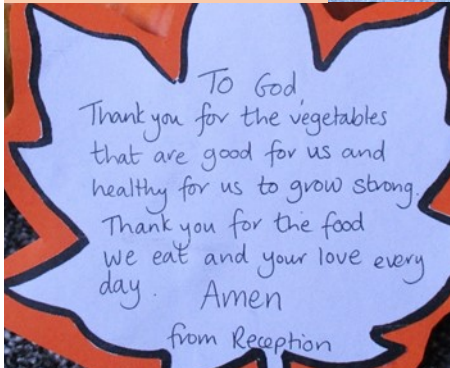 To God,
Thank you for the vegetables
that are good for us and
healthy for us to grow strong.
Thank you for the food
we eat and your love every
day. Amen
from Reception